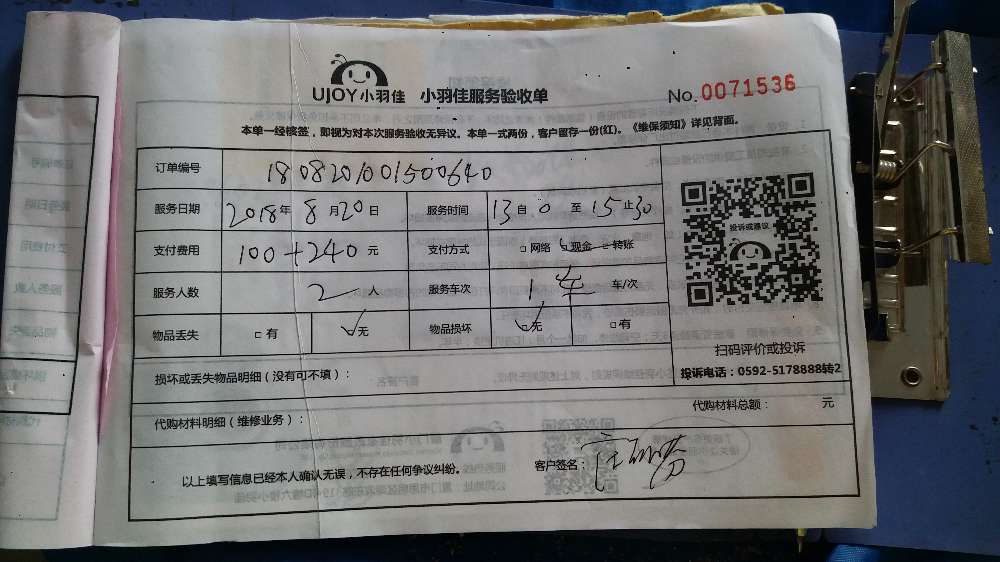 UJOY小羽佳 小羽佳服务验收单 No.0071536
本单一经核签，即视为对本次服务验收无异议。本单一式两份，客户留存一份(红)。《维保须知》详见背面。
订单编号 1808201001500640
服务日期 2018年 8月20日 服务时间 13自0至15止30
支付费用 100+240元 支付方式 □网络 ✓现金 □转账
服务人数 2人 服务车次 1车 车/次
物品丢失 □有 ✓无 物品损坏 ✓无 □有
投诉或建议
扫码评价或投诉
投诉电话：0592-5178888转2
损坏或丢失物品明细（没有可不填）：
代购材料明细（维修业务）： 代购材料总额： 元
以上填写信息已经本人确认无误，不存在任何争议纠纷。 客户签名：